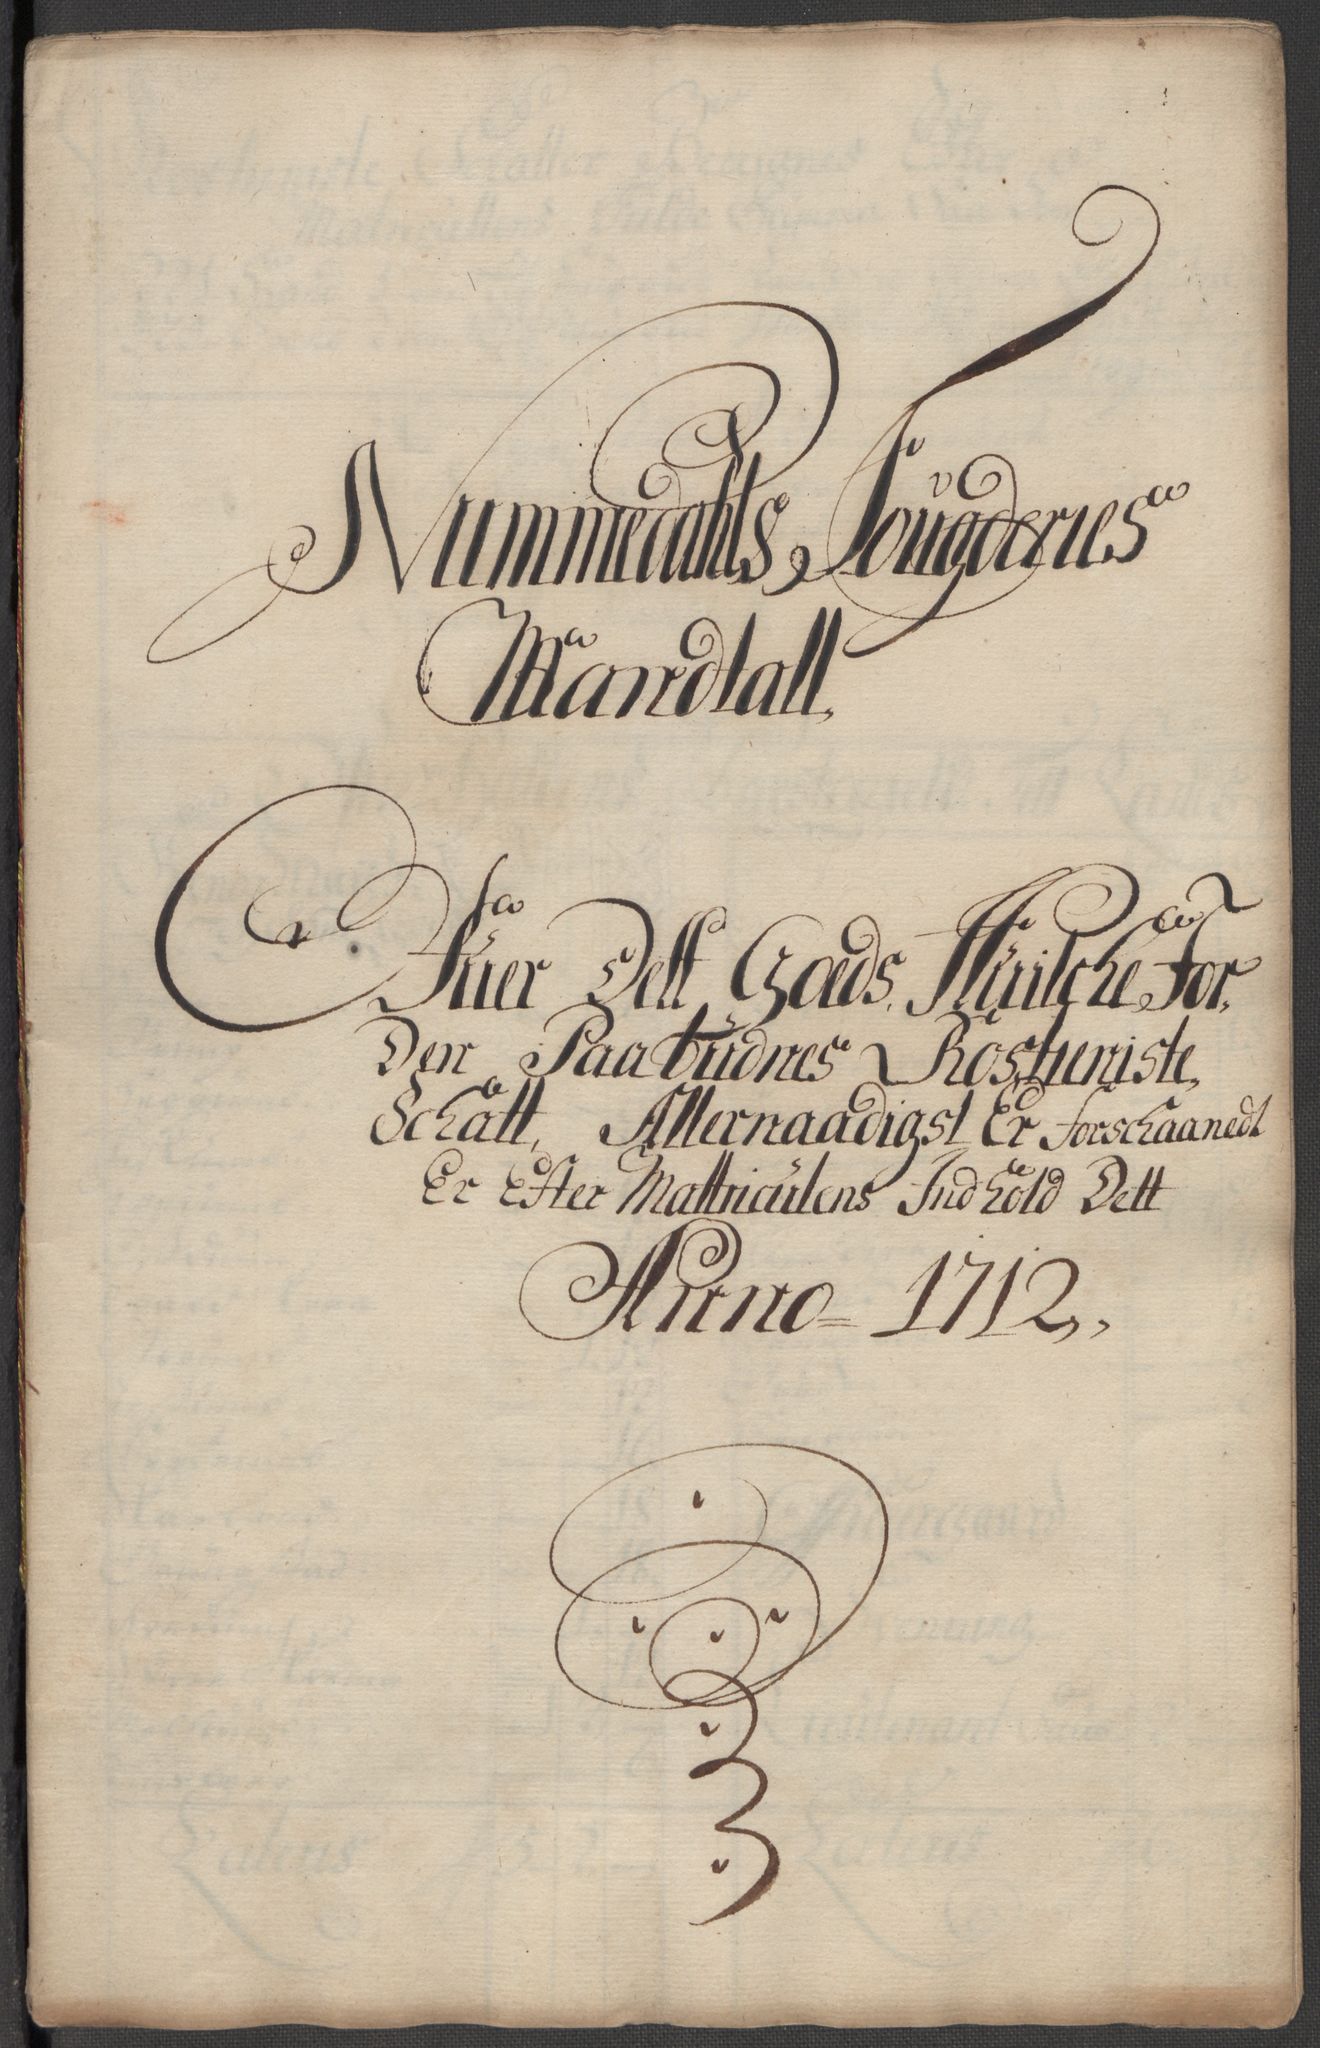 Nummedahls Fougderies
Mandtall
Ofuer Dett Goeds Huilche For
Den Paabudnes Rostieniste
Schatt, Allernaadigst Er forschaanedt
Er Efter Mattriculens Indhold Dett
Anno 1712,,